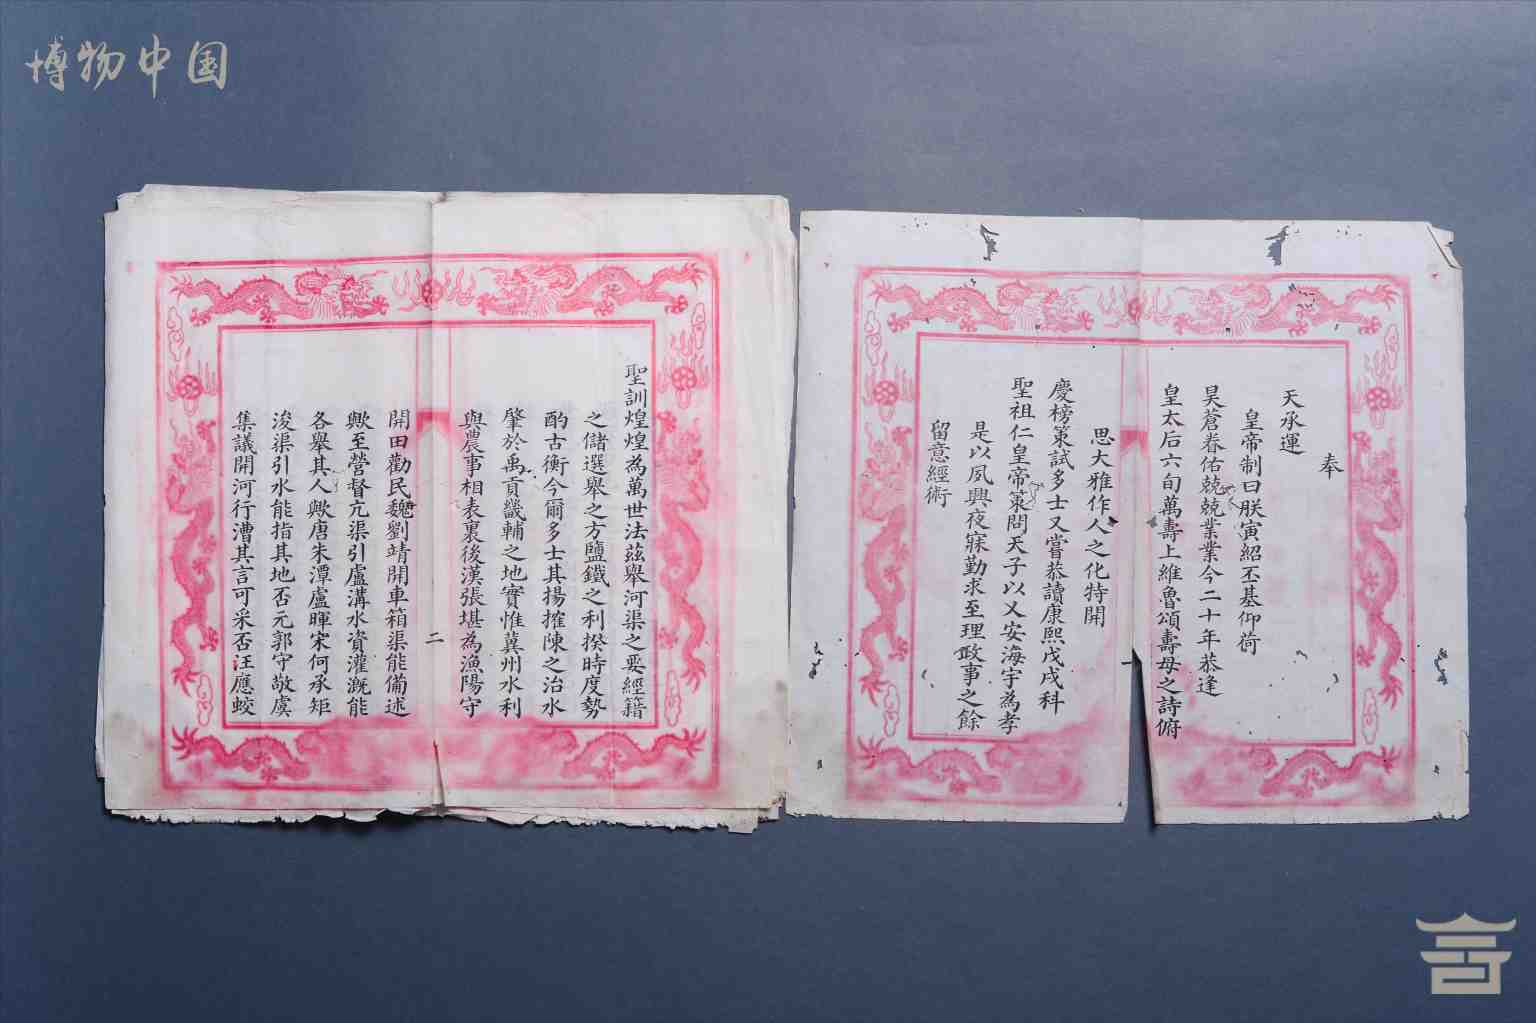 博物中国
奉
天承運
皇帝制曰朕寅紹丕基仰荷
昊蒼眷佑兢兢業業今二十年恭逢
皇太后六旬萬壽上維魯頌壽母之詩俯
思大雅作人之化特開
慶榜策試多士又嘗恭讀康熙戊戌科
聖祖仁皇帝策問天子以乂安海宇為孝
是以夙興夜寐勤求至理政事之餘
留意經術
聖訓煌煌為萬世法茲舉河渠之要經籍
之儲選舉之方鹽鐵之利揆時度勢
酌古衡今爾多士其揚搉陳之治水
肇於禹貢畿輔之地實惟冀州水利
與農事相表裏後漢張堪為漁陽守
二
開田勸民魏劉靖開車箱渠能備述
歟至營督亢渠引盧溝水資灌溉能
各舉其人歟唐朱潭盧暉宋何承矩
浚渠引水能指其地否元郭守敬虞
集議開河行漕其言可采否汪應蛟